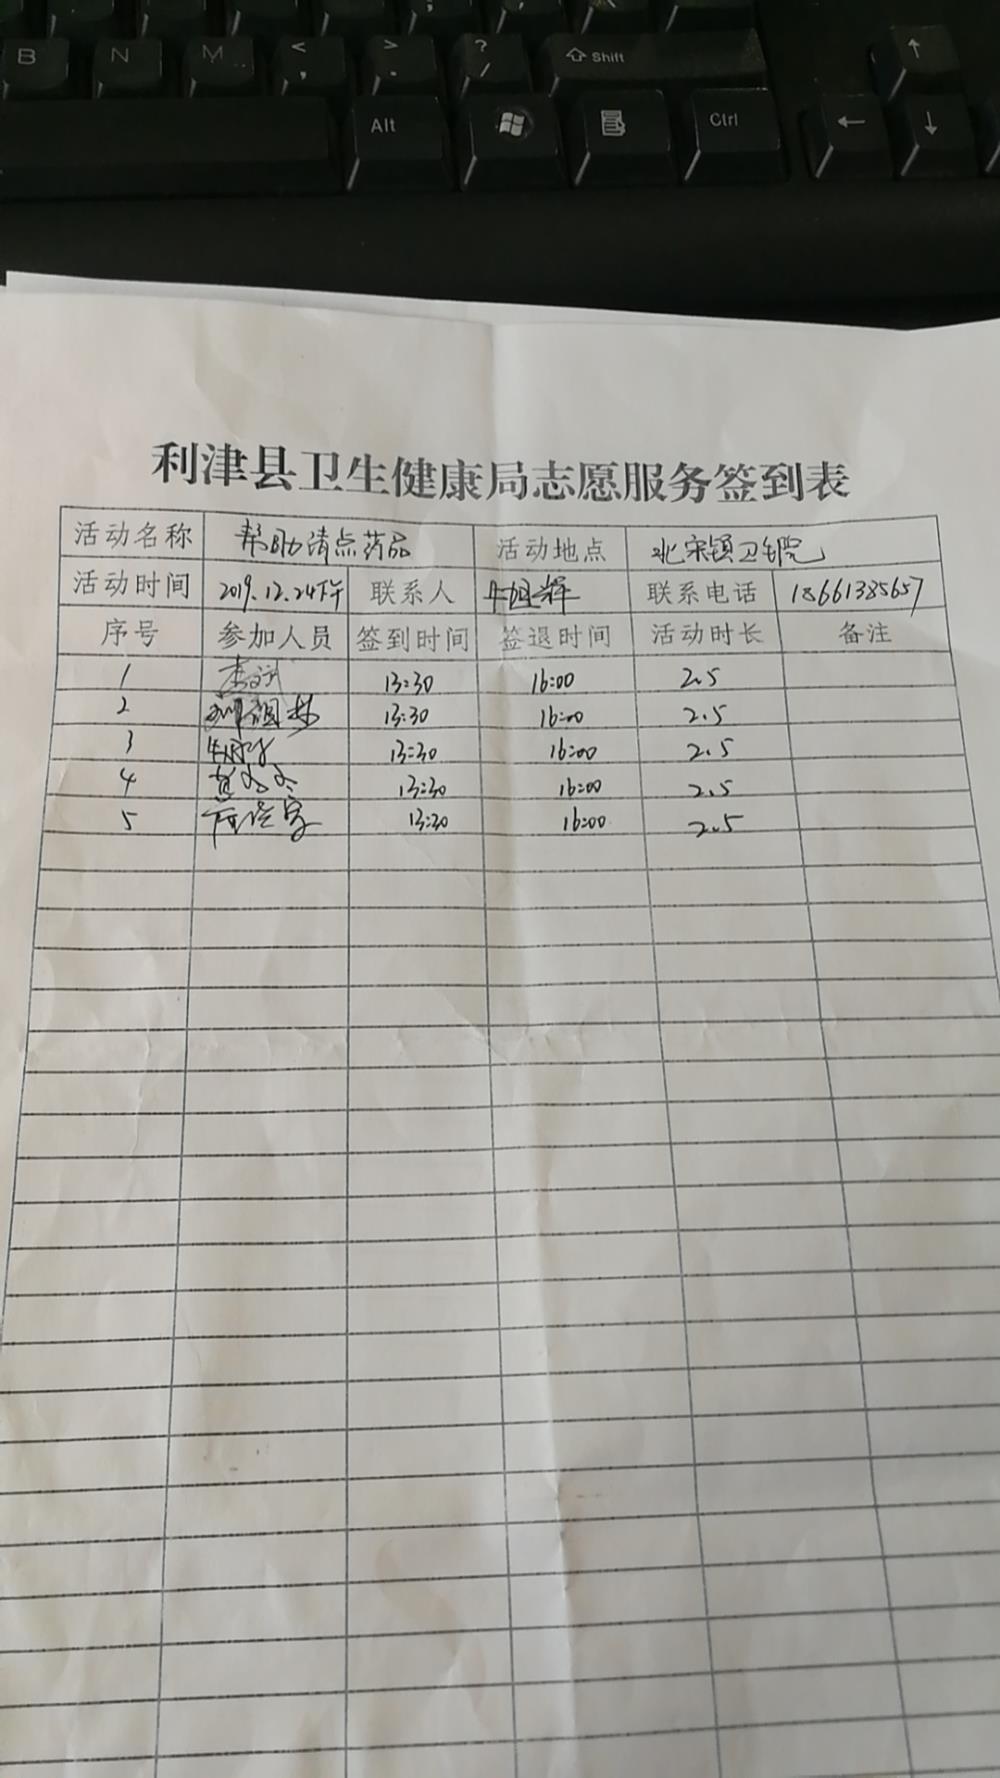 B N M < , > . ? / Shift ↑
Alt Ctrl ← ↓
利津县卫生健康局志愿服务签到表
活动名称 帮助清点药品 活动地点 北宋镇卫生院
活动时间 2019.12.24下午 联系人 联系电话 18661385657
序号 参加人员 签到时间 签退时间 活动时长 备注
1 13:30 16:00 2.5
2 13:30 16:00 2.5
3 13:30 16:00 2.5
4 黄冬冬 13:30 16:00 2.5
5 13:30 16:00 2.5